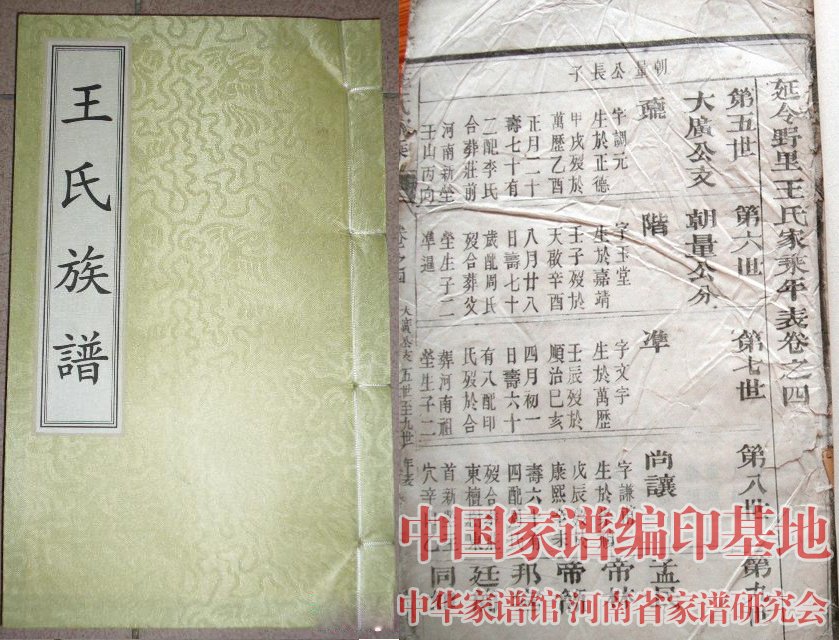 王氏族譜
延令野里王氏家乘年表卷之四
第五世
第六世
第七世
第八世
大廣公支
朝量公分
朝量公長子
字調元
生於正德
甲戌歿於
萬歷乙酉
正月二十
壽七十有
二配李氏
合葬莊前
河南新塋
壬山丙向
階
字玉堂
生於嘉靖
壬子歿於
天啟辛酉
八月廿八
日壽七十
歲配周氏
歿合葬父
塋生子二
準暹
準
字文宇
生於萬歷
壬辰歿於
順治己亥
四月初一
日壽六十
有八配印
氏歿於合
葬河南祖
塋生子二
尚讓
字謙
生於
戊辰
康熙
壽六
四配
歿合
東檀
首新
穴辛
卷之四
大廣公支五世至九世年表
中国家谱编印基地
中华家谱馆 河南省家谱研究会